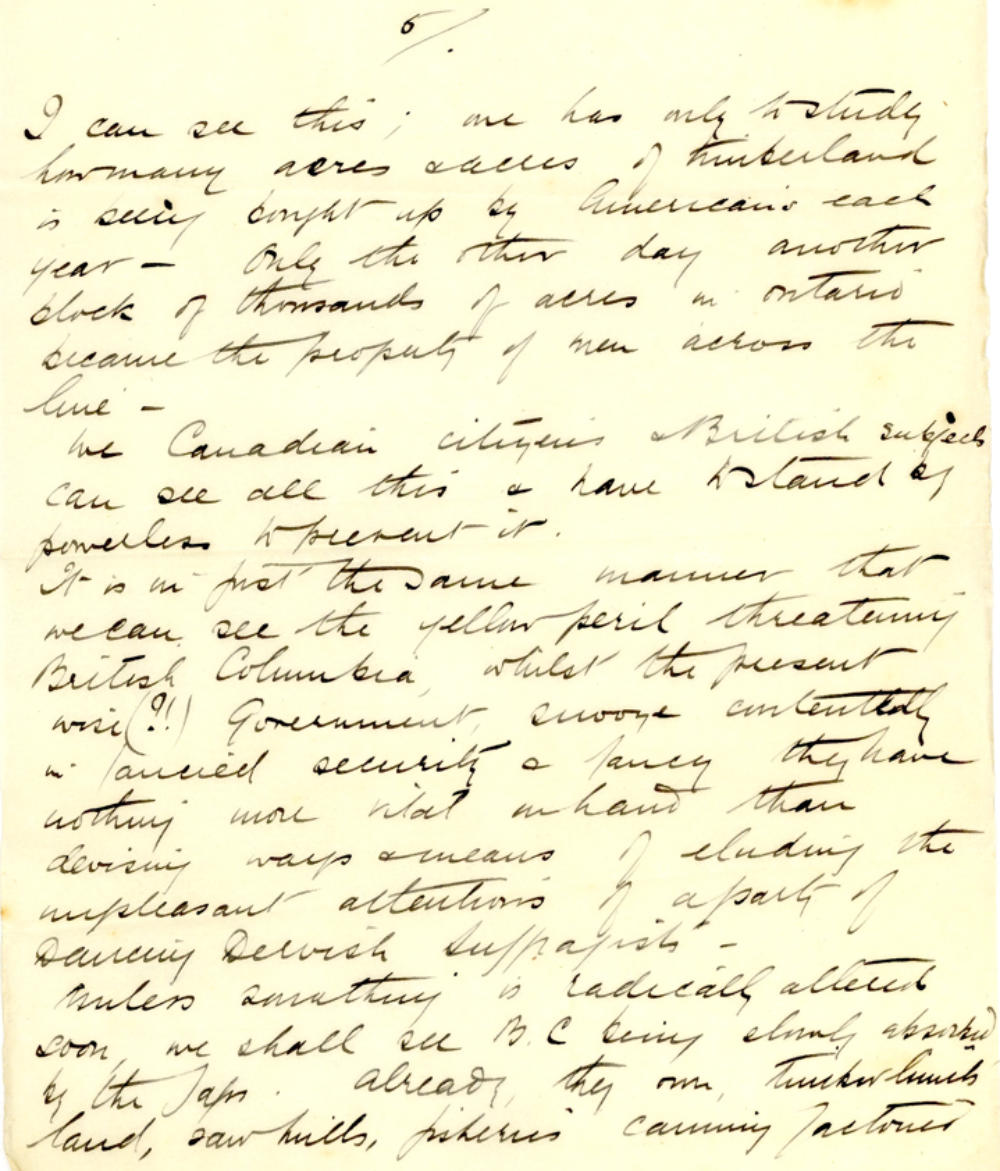 5/.
I can see this; one has only to study
how many acres & acres of timberland
is being bought up by Americans each
year - Only the other day another
block of thousands of acres in Ontario
became the property of men across the
line -
We Canadian citizens & British subjects
can see all this & have to stand by
powerless to prevent it.
It is in just the same manner that
we can see the yellow peril threatening
British Columbia, whilst the present
wise (?!) Government, snooze contentedly
in fancied security & fancy they have
nothing more vital on hand than
devising ways & means of eluding the
unpleasant attentions of a party of
Dancing Dervish Suffragists -
Unless something is radically altered
soon, we shall see B.C being slowly absorbed
by the Japs. Already, they own, timber limits
land, saw mills, fisheries canning factories